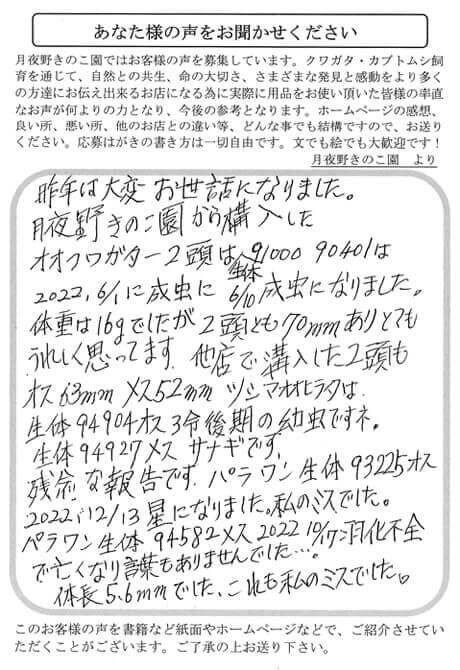 あなた様の声をお聞かせください
月夜野きのこ園ではお客様の声を募集しています。クワガタ・カブトムシ飼
育を通じて、自然との共生、命の大切さ、さまざまな発見と感動をより多く
の方達にお伝え出来るお店になる為に実際に用品をお使い頂いた皆様の率直
なお声が何よりの力となり、今後の参考となります。ホームページの感想、
良い所、悪い所、他のお店との違い等、どんな事でも結構ですので、お送り
ください。応募はがきの書き方は一切自由です。文でも絵でも大歓迎です！
月夜野きのこ園　より
昨年は大変お世話になりました。
月夜野きのこ園から購入した
オオクワガタ2頭は生体91000 90401は
2022,6/1に成虫に 6/10成虫になりました。
体重は16gでしたが2頭とも70mmありとても
うれしく思ってます。他店で購入した2頭も
オス63mm メス52mm ツシマオオヒラタは
生体94904オス3令後期の幼虫ですネ。
生体94927メス サナギです。
残念な報告です。パラワン生体93225オス
2022,12/13星になりました。私のミスでした。
パラワン生体94582メス2022 10/17羽化不全
で亡くなり言葉もありませんでした…。
体長5.6mmでした、これも私のミスでした。
このお客様の声を書籍など紙面やホームページなどで、ご紹介させてい
ただくことがございます。ご了承の上お送り下さい。